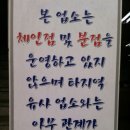 본 업소는
체인점 및 분점을
운영하고 있지
않으며 타지역
유사 업소와는
아무 관계가